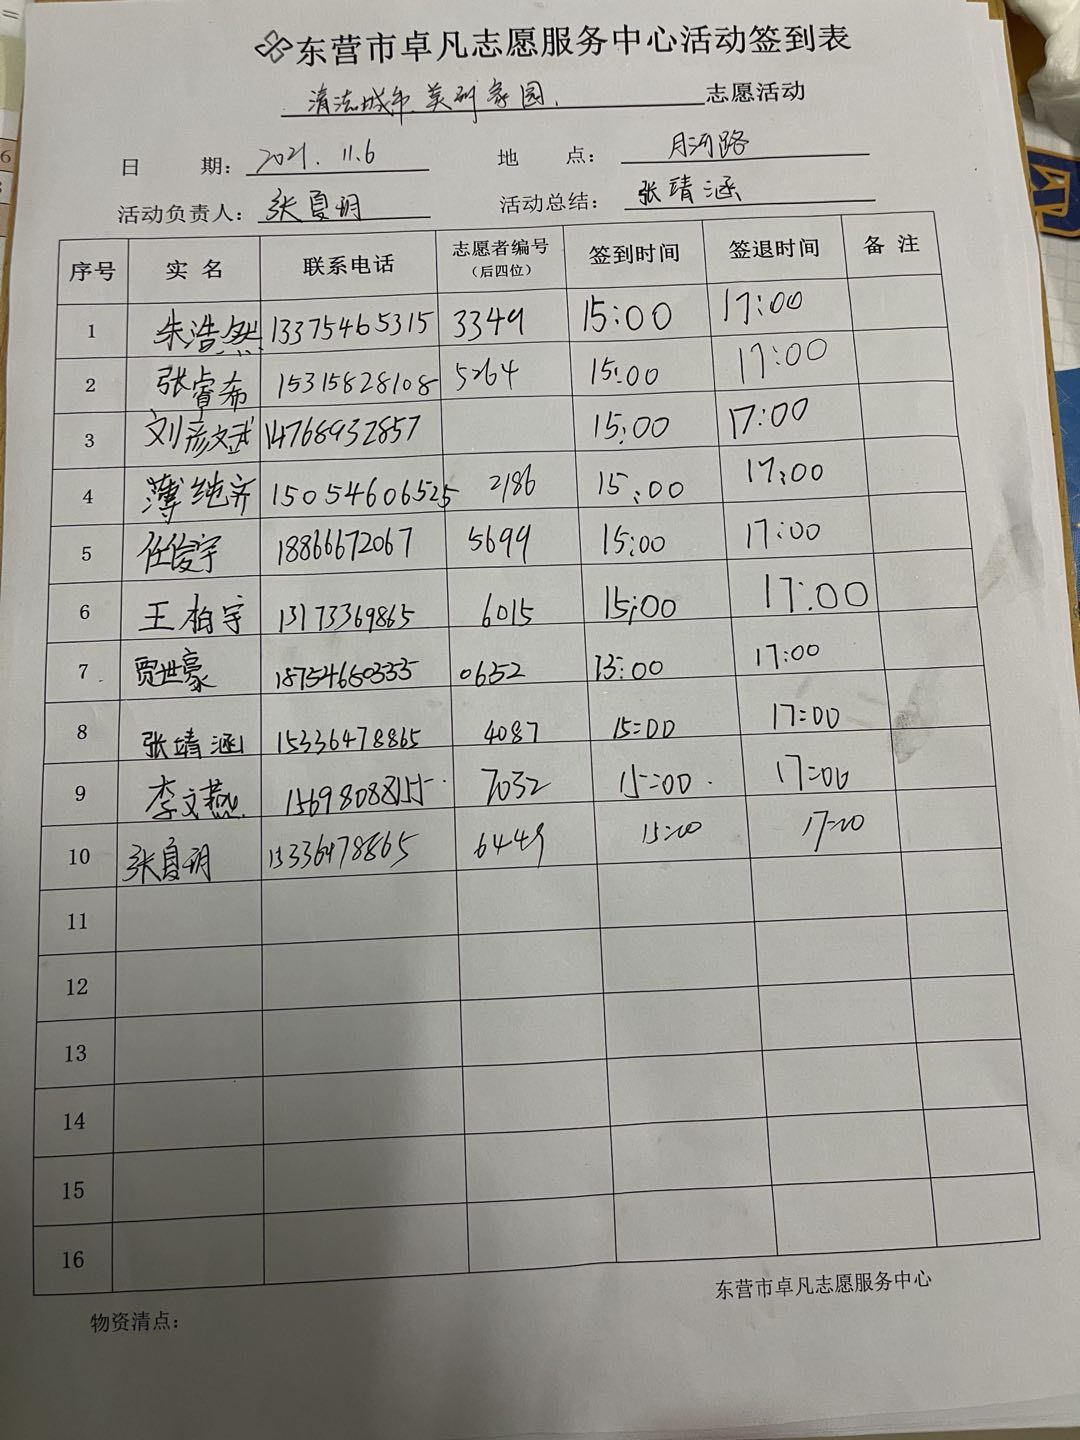 东营市卓凡志愿服务中心活动签到表
清洁城市、美丽家园、 志愿活动
日 期： 2021.11.6 地 点： 月河路
活动负责人： 张夏玥 活动总结： 张靖涵
序号 实 名 联系电话 志愿者编号（后四位） 签到时间 签退时间 备 注
1 朱浩然 13375465315 3349 15:00 17:00
2 张睿希 15315828108 5264 15:00 17:00
3 刘彦文武 14768932857 15:00 17:00
4 薄纯齐 15054606525 2186 15:00 17:00
5 任俊宇 18866672067 5699 15:00 17:00
6 王柏宇 13173369865 6015 15:00 17:00
7 贾世豪 18754660333 0652 15:00 17:00
8 张靖涵 15336478865 4087 15:00 17:00
9 李文燕 15698088155 7032 15:00 17:00
10 张夏玥 15336478865 6449 15:00 17:00
11
12
13
14
15
16
东营市卓凡志愿服务中心
物资清点：